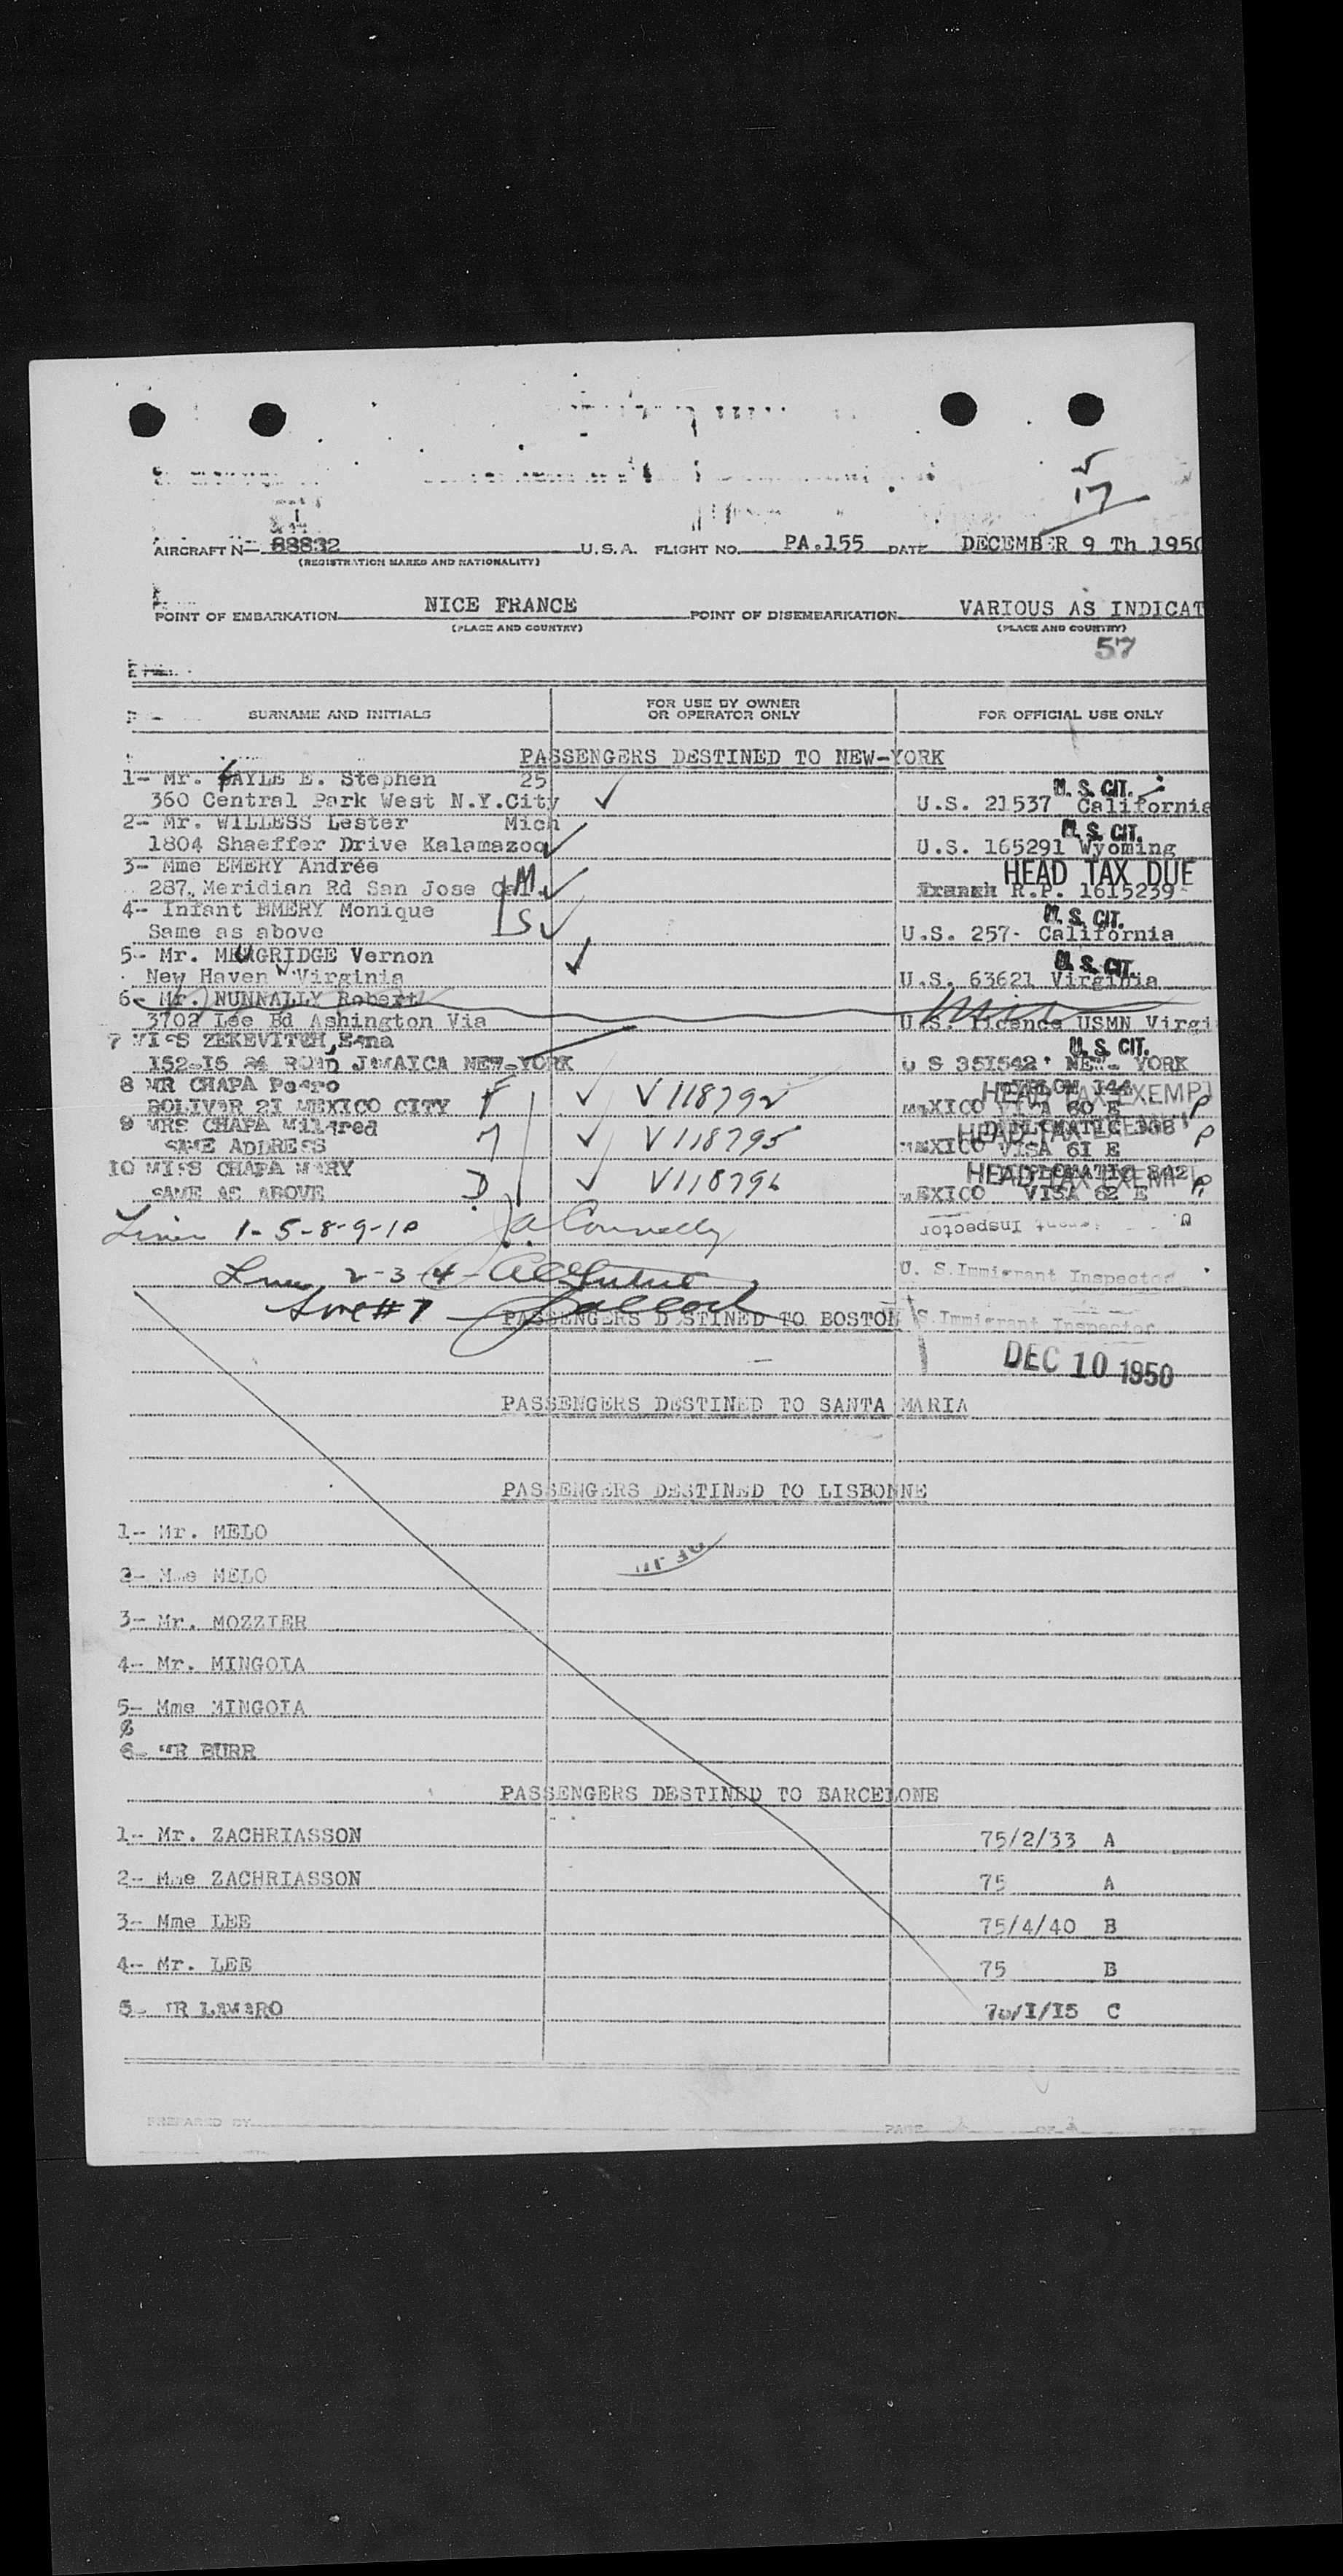 17
AIRCRAFT N- 88832 U.S.A. FLIGHT NO. PA.155 DATE DECEMBER 9 Th 1950
(REGISTRATION MARKS AND NATIONALITY)
POINT OF EMBARKATION NICE FRANCE POINT OF DISEMBARKATION VARIOUS AS INDICAT
(PLACE AND COUNTRY) (PLACE AND COUNTRY)
57
SURNAME AND INITIALS FOR USE BY OWNER OR OPERATOR ONLY FOR OFFICIAL USE ONLY
PASSENGERS DESTINED TO NEW-YORK
1- Mr. GAYLE E. Stephen 25 U.S. CIT.
360 Central Park West N.Y.City U.S. 21537 California
2- Mr. WILLESS Lester Mich U.S. CIT.
1804 Shaeffer Drive Kalamazoo U.S. 165291 Wyoming
3- Mme EMERY Andrée HEAD TAX DUE
287, Meridian Rd San Jose Cal. M R.P. 1615239
4- Infant EMERY Monique U.S. CIT.
Same as above S U.S. 257- California
5- Mr. MUGRIDGE Vernon U.S. CIT.
New Haven W Virginia U.S. 63621 Virginia
6- Mr. NUNNALLY Robert
3702 Lee Bd Ashington Via U.S. licence USMN Virgi
7 MISS ZEKEVITCH, Edna U.S. CIT.
152-15 84 ROAD JAMAICA NEW-YORK U S 351542 NEW- YORK
8 MR CHAPA Pedro F V118792 DIPLOM 144 HEAD TAX EXEMPT
BOLIVAR 21 MEXICO CITY MEXICO VISA 60 E P
9 MRS CHAPA Mildred M V118795 DIPLOMATIC 338 HEAD TAX EXEMPT
SAME ADDRESS MEXICO VISA 61 E P
10 MISS CHAPA MARY D V118796 DIPLOMATIC 342 HEAD TAX EXEMPT
SAME AS ABOVE MEXICO VISA 62 E P
Lines 1-5-8-9-10 J.A. Connelly Immigrant Inspector
Lines 2-3-4- U. S. Immigrant Inspector
Line #7
PASSENGERS DESTINED TO BOSTON S. Immigrant Inspector
DEC 10 1950
PASSENGERS DESTINED TO SANTA MARIA
PASSENGERS DESTINED TO LISBONNE
1- Mr. MELO
2- Mme MELO
3- Mr. MOZZIER
4- Mr. MINGOIA
5- Mme MINGOIA
6- MR BURR
PASSENGERS DESTINED TO BARCELONE
1- Mr. ZACHRIASSON 75/2/33 A
2- Mme ZACHRIASSON 75 A
3- Mme LEE 75/4/40 B
4- Mr. LEE 75 B
5- MR LAMARO 70/1/15 C
PREPARED BY PAGE OF